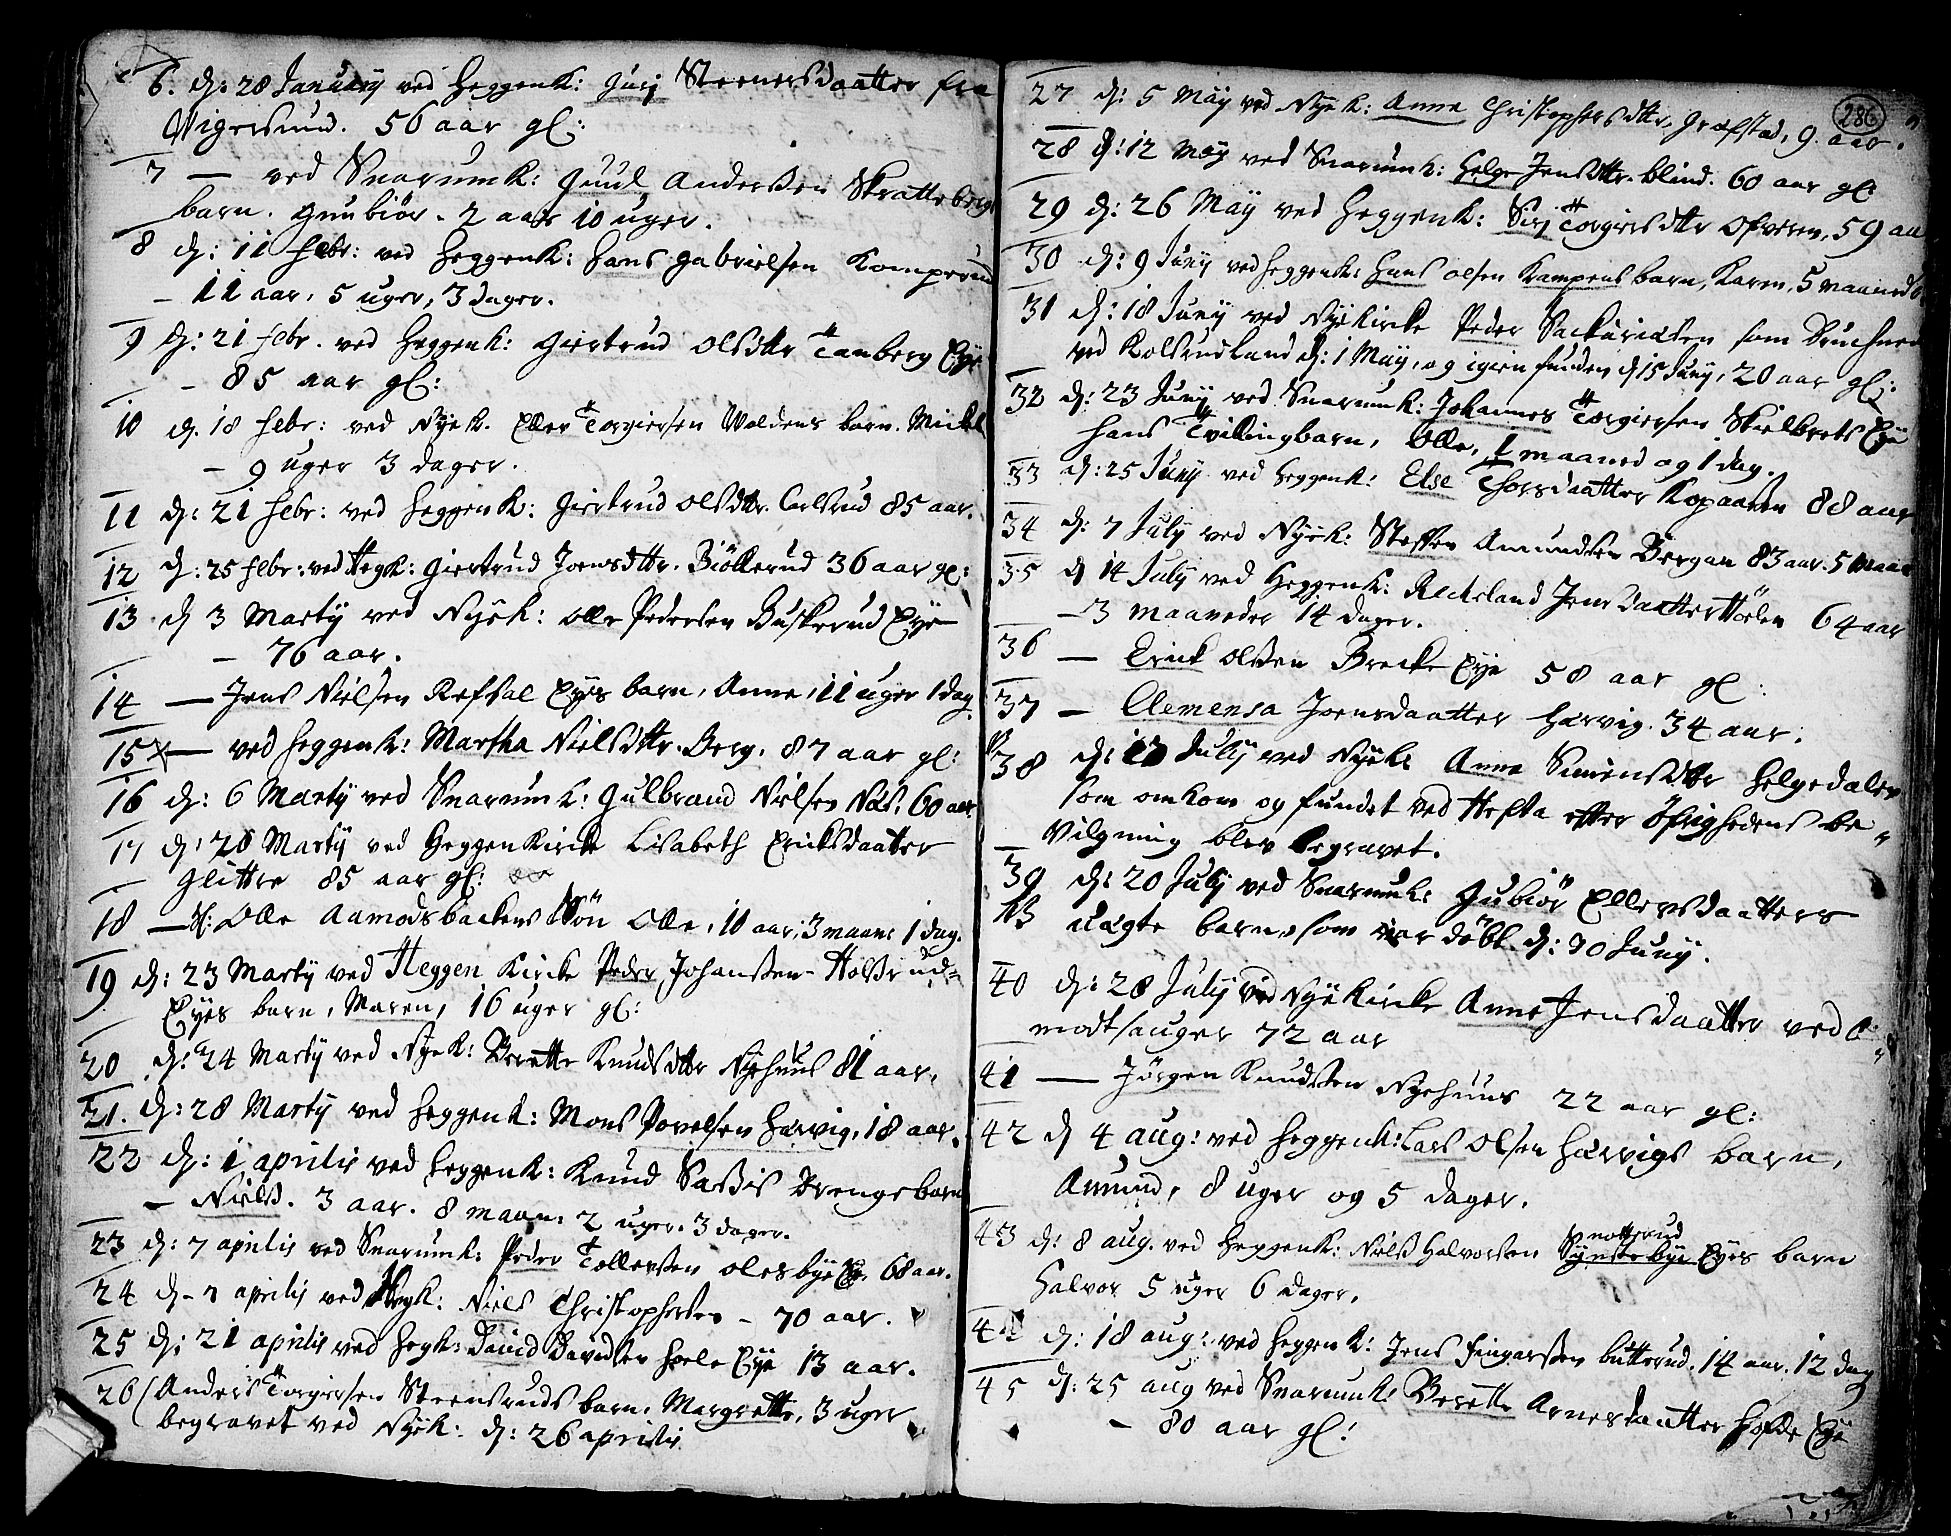 6. d: 28 January ved Heggenk: Gurj Steenersdaatter fra
Vigersund. 56 aar gl:
7 — ved Snarumk: Guul Anderßen Skrattebergs
barn. Gunbiör. 2 aar 10 uger.
8 d: 11 Febr: ved Heggenk: Hans Gabrielsen Komperud
– 11 aar, 5 uger, 3 dager.
9 d: 21 Febr. ved Heggenk: Giertrud Olsdttr Tanberg Eye
– 85 aar gl:
10 d. 18 Febr: ved Nyek. Eller Torgiersen Woldens barn. Mickel
– 9 uger 3 dager.
11 d: 21 Febr: ved Heggenk: Giertrud Olsdttr. Carlsrud 85 aar.
12 d: 25 Febr: ved Hegk: Giertrud Joensdttr. Biöllerud 36 aar gl:
13 d 3 Marty ved Nyek: Olle Pedersen Buskerud Eye
– 76 aar.
14 — Jens Nielsen Refsal Eyes barn, Anne, 11 uger 1 dag
15 — ved Heggenk: Martha Nielsdttr. Berg. 87 aar gl:
16 d: 6 Marty ved Snarumk: Gulbrand Nielsen Næs. 60 aar
17 d: 20 Marty ved Heggen Kircke Lisabeth Ericksdaatter
Glittre 85 aar gl:
18 — Olle Aamodsbackens Sön Olle, 10 aar, 3 maan: 1 dag.
19 d: 23 Marty ved Heggen Kircke Peder Johanßen Holsrud-
Eyes barn, Maren, 16 uger gl:
20 d: 24 Marty ved Nyek: Berette Knudsdttr Nyehuus 81 aar.
21. d: 28 Marty ved Heggenk: Mons Povelsen Hærvig, 18 aar.
22 d: 1 aprilis ved Heggenk: Knud Saßis Drengebarn
– Niels. 3 aar. 8 maan: 2 uger. 3 dager.
23 d: 7 aprilis ved Snarumk: Peder Tollerßen Olesbye Eye. 68 aar.
24 d – 7 aprilis ved Hegk: Niels Christophersen – 70 aar.
25 d: 21 aprilis ved Hegk: David Davidsen Hæle Eye 13 aar.
26 (Anders Torgiersen Steensruds barn. Margrette, 3 uger
begravet ved Nyek: d: 26 aprilis
286
27 d: 5 May ved Nyek: Anne Christophersdttr, Græfstad, 9 aar.
28 d: 12 May ved Snarumk: Helge Jensdttr. blind. 60 aar gl:
29 d: 26 May ved Heggenk: Sirj Torgiersdttr Ofveren, 59 aar
30 d: 9 Juny ved Heggenk: Hans Olsen Kampens barn, Karen, 5 maaneder
31 d: 18 Juny ved Nyekircke Peder Sackariasen som Druchnede
ved Kolsrudland d: 1 May, og igien funden d 15 Juny, 20 aar gl:
32 d: 23 Juny ved Snarumk: Johannes Torgiersen Skielbreds Eye
hans Tvillingbarn, Olle, 1 maaned og 1 dag.
33 d: 25 Juny ved Heggenk: Else Thorsdaatter Kopaasen 88 aar
34 d: 7 July ved Nyek: Steffen Amundsen Bergan 83 aar. 5 maan
35 d 14 July ved Heggenk: Recheland Jensdaatter Hölen 64 aar
– 3 maaneder 14 dager.
36 — Erick Olßen Brecke Eye 58 aar gl:
37 — Clemensa Joensdaatter Hærvig. 34 aar.
38 d: 13 July ved Nyek: Anne Simensdttr Helgedalen
som omkom og fundet ved Hefta efter Öfrighedens be-
vilgning blev begravet.
39 d: 20 July ved Snarumk: Gubiör Ellersdaatters
NB uægte barn, som var döbt d: 30 Juny.
40 d: 28 July ved Nyekircke Anne Jensdaatter ved A-
modtsauger 72 aar
41 — Jörgen Knudßen Nyehuus 22 aar gl:
42 d 4 aug: ved Heggenk: Lars Olsen Hærvigs barn,
Amund, 8 uger og 5 dager.
43 d: 8 aug. ved Heggenk: Niels Halvorßen Synstebye Eyes barn
Halvor 5 uger 6 dager.
44 d: 18 aug: ved Heggenk: Jens Fingarßen Butterud. 14 aar. 12 dag
45 d: 25 aug ved Snarumk: Berette Arnesdaatter Hofde Eye
– 80 aar gl: